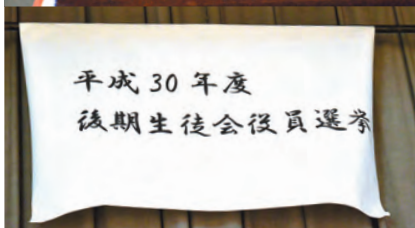 平成30年度
後期生徒会役員選挙